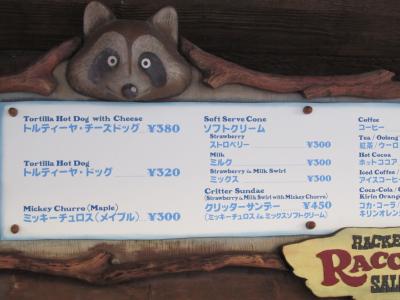 Tortilla Hot Dog with Cheese
トルティーヤ・チーズドッグ ¥380
Tortilla Hot Dog
トルティーヤ・ドッグ ¥320
Mickey Churro (Maple)
ミッキーチュロス(メイプル) ¥300
Soft Serve Cone
ソフトクリーム
Strawberry
ストロベリー ¥300
Milk
ミルク ¥300
Strawberry & Milk Swirl
ミックス ¥300
Critter Sundae
(Strawberry & Milk Swirl with Mickey Churro)
クリッターサンデー ¥450
(ミッキーチュロス & ミックスソフトクリーム)
Coffee
コーヒー
Tea / Oolong
紅茶 / ウーロ
Hot Cocoa
ホットココア
Iced Coffee /
アイスコーヒー
Coca-Cola /
Kirin Orange
コカ・コーラ
キリンオレン
HACKE
RACCO
SAL